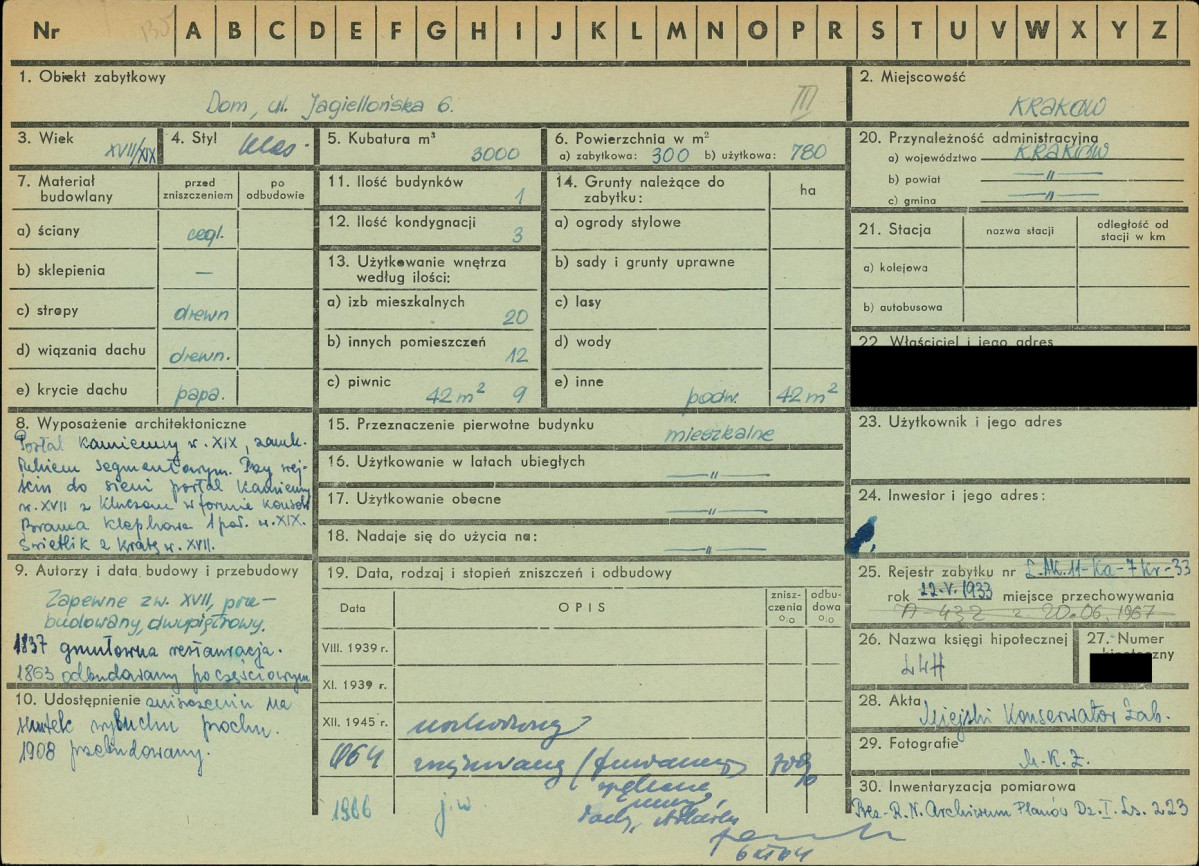 Nr A B C D E F G H I J K L M N O P R S T U V W X Y Z
1. Obiekt zabytkowy
Dom, ul. Jagiellońska 6.
III
2. Miejscowość
KRAKOW
3. Wiek
XVII/XIX
4. Styl
klas.
5. Kubatura m³
3000
6. Powierzchnia w m²
a) zabytkowa: 300 b) użytkowa: 780
20. Przynależność administracyjna
a) województwo KRAKOW
b) powiat —〃—
c) gmina —〃—
7. Materiał budowlany
przed zniszczeniem
po odbudowie
a) ściany cegl.
b) sklepienia —
c) stropy drewn
d) wiązania dachu drewn.
e) krycie dachu papa.
11. Ilość budynków 1
12. Ilość kondygnacji 3
13. Użytkowanie wnętrza
według ilości:
a) izb mieszkalnych 20
b) innych pomieszczeń 12
c) piwnic 42 m² 9
14. Grunty należące do
zabytku:
ha
a) ogrody stylowe
b) sady i grunty uprawne
c) lasy
d) wody
e) inne podw. 42 m²
21. Stacja
nazwa stacji
odległość od
stacji w km
a) kolejowa
b) autobusowa
22. Właściciel i jego adres
8. Wyposażenie architektoniczne
Portal kamienny w. XIX, zamk.
łukiem segmentowym. Przy wej-
ściu do sieni portal kamienny
w. XVII z kluczem w formie konsoli
Brama klepkowa 1 poł. w. XIX.
Świetlik z kratą w. XVII.
15. Przeznaczenie pierwotne budynku
mieszkalne
16. Użytkowanie w latach ubiegłych
—〃—
17. Użytkowanie obecne
—〃—
18. Nadaje się do użycia na:
—〃—
23. Użytkownik i jego adres
24. Inwestor i jego adres:
9. Autorzy i data budowy i przebudowy
Zapewne z w. XVII, prze-
budowany, dwupiętrowy.
1837 gruntowna restauracja.
1863 odbudowany po częściowym
10. Udostępnienie
zniszczeniu na
skutek wybuchu prochu.
1908 przebudowany.
19. Data, rodzaj i stopień zniszczeń i odbudowy
Data
OPIS
znisz-
czenia
%
odbu-
dowa
%
VIII. 1939 r.
XI. 1939 r.
XII. 1945 r. uszkodzony
1964
1966 j.w.
25. Rejestr zabytku nr L.AK.11-Ka-7 Kr-33
rok 22.V.1933 miejsce przechowywania
A-432 z 20.06.1967
26. Nazwa księgi hipotecznej
27. Numer
28. Akta
Miejski Konserwator Zab.
29. Fotografie
M.K.Z.
30. Inwentaryzacja pomiarowa
Prez. R.N. Archiwum Planów Dz. I. Ls. 223